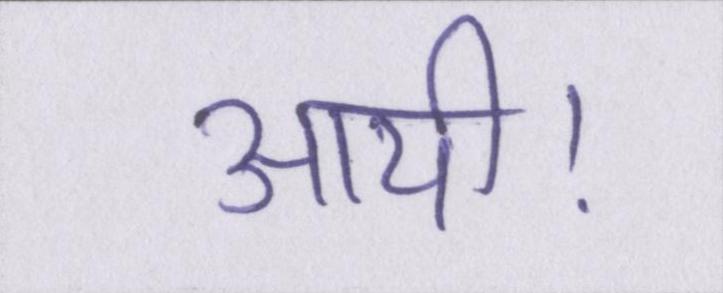 आयी!